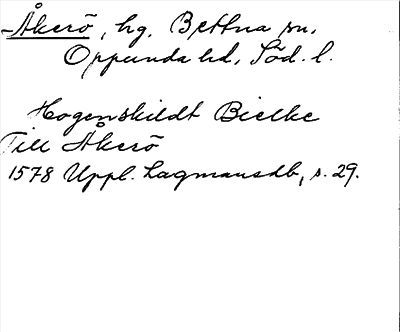 Åkerö, hg. Bettna sn.
Oppunda hd, Söd. l.
Hogenskildt Bielke
Till Åkerö
1578 Uppl. Lagmansdb, s. 29.